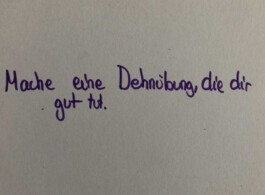 Mache eine Dehnübung, die dir
gut tut.